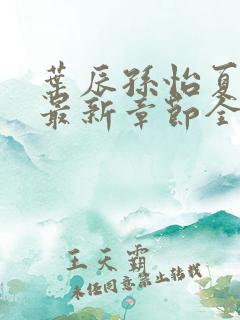 叶辰孙怡夏
最新章节全
王天霸
未经同意禁止转载